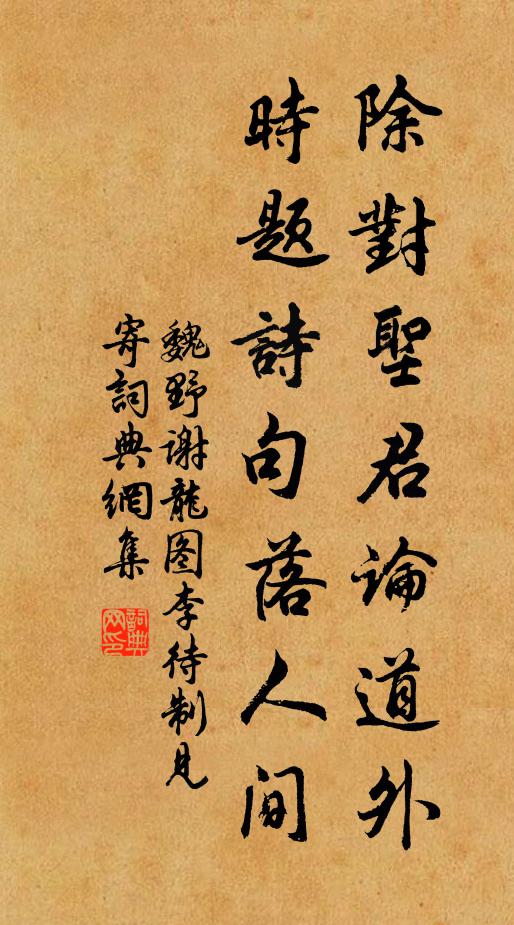 除對聖君論道外
時题詩句落人间
魏野谢龍图李待制見
寄詞典網集
詞典网印